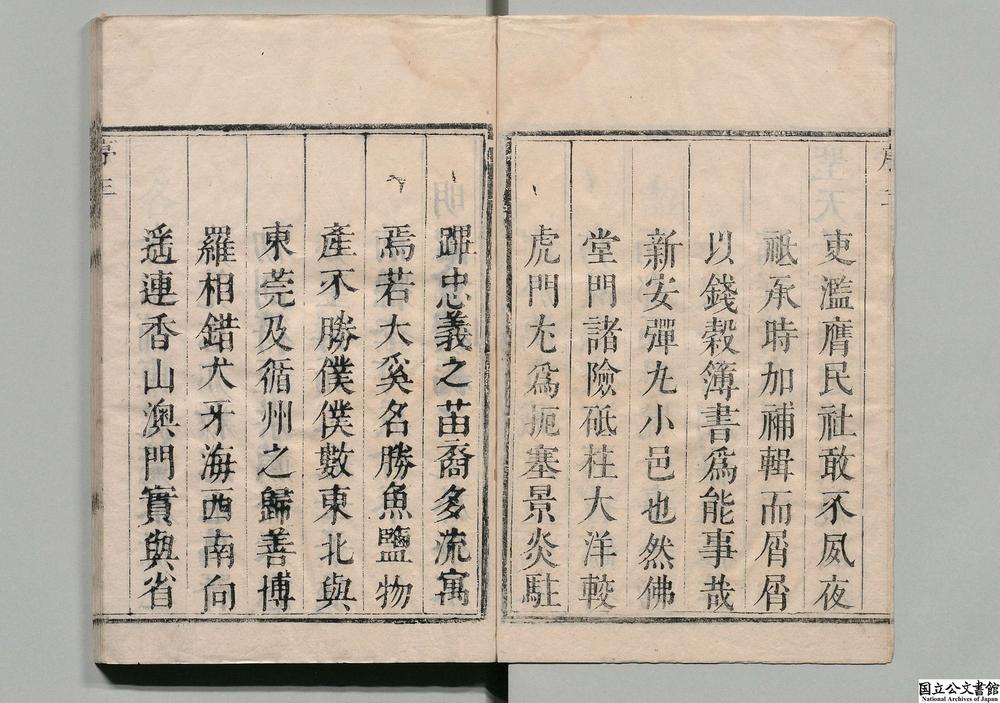 吏濫膺民社敢不夙夜
祗承時加補輯而屑屑
以錢榖簿書爲能事哉
新安彈丸小邑也然佛
堂門諸險砥柱大洋較
虎門尤爲扼塞景炎駐
蹕忠義之苗裔多流寓
焉若大奚名勝魚鹽物
產不勝僕僕數東北與
東莞及循州之歸善博
羅相錯犬牙海西南向
遥連香山澳門實與省
序三
国立公文書館
National Archives of Japan